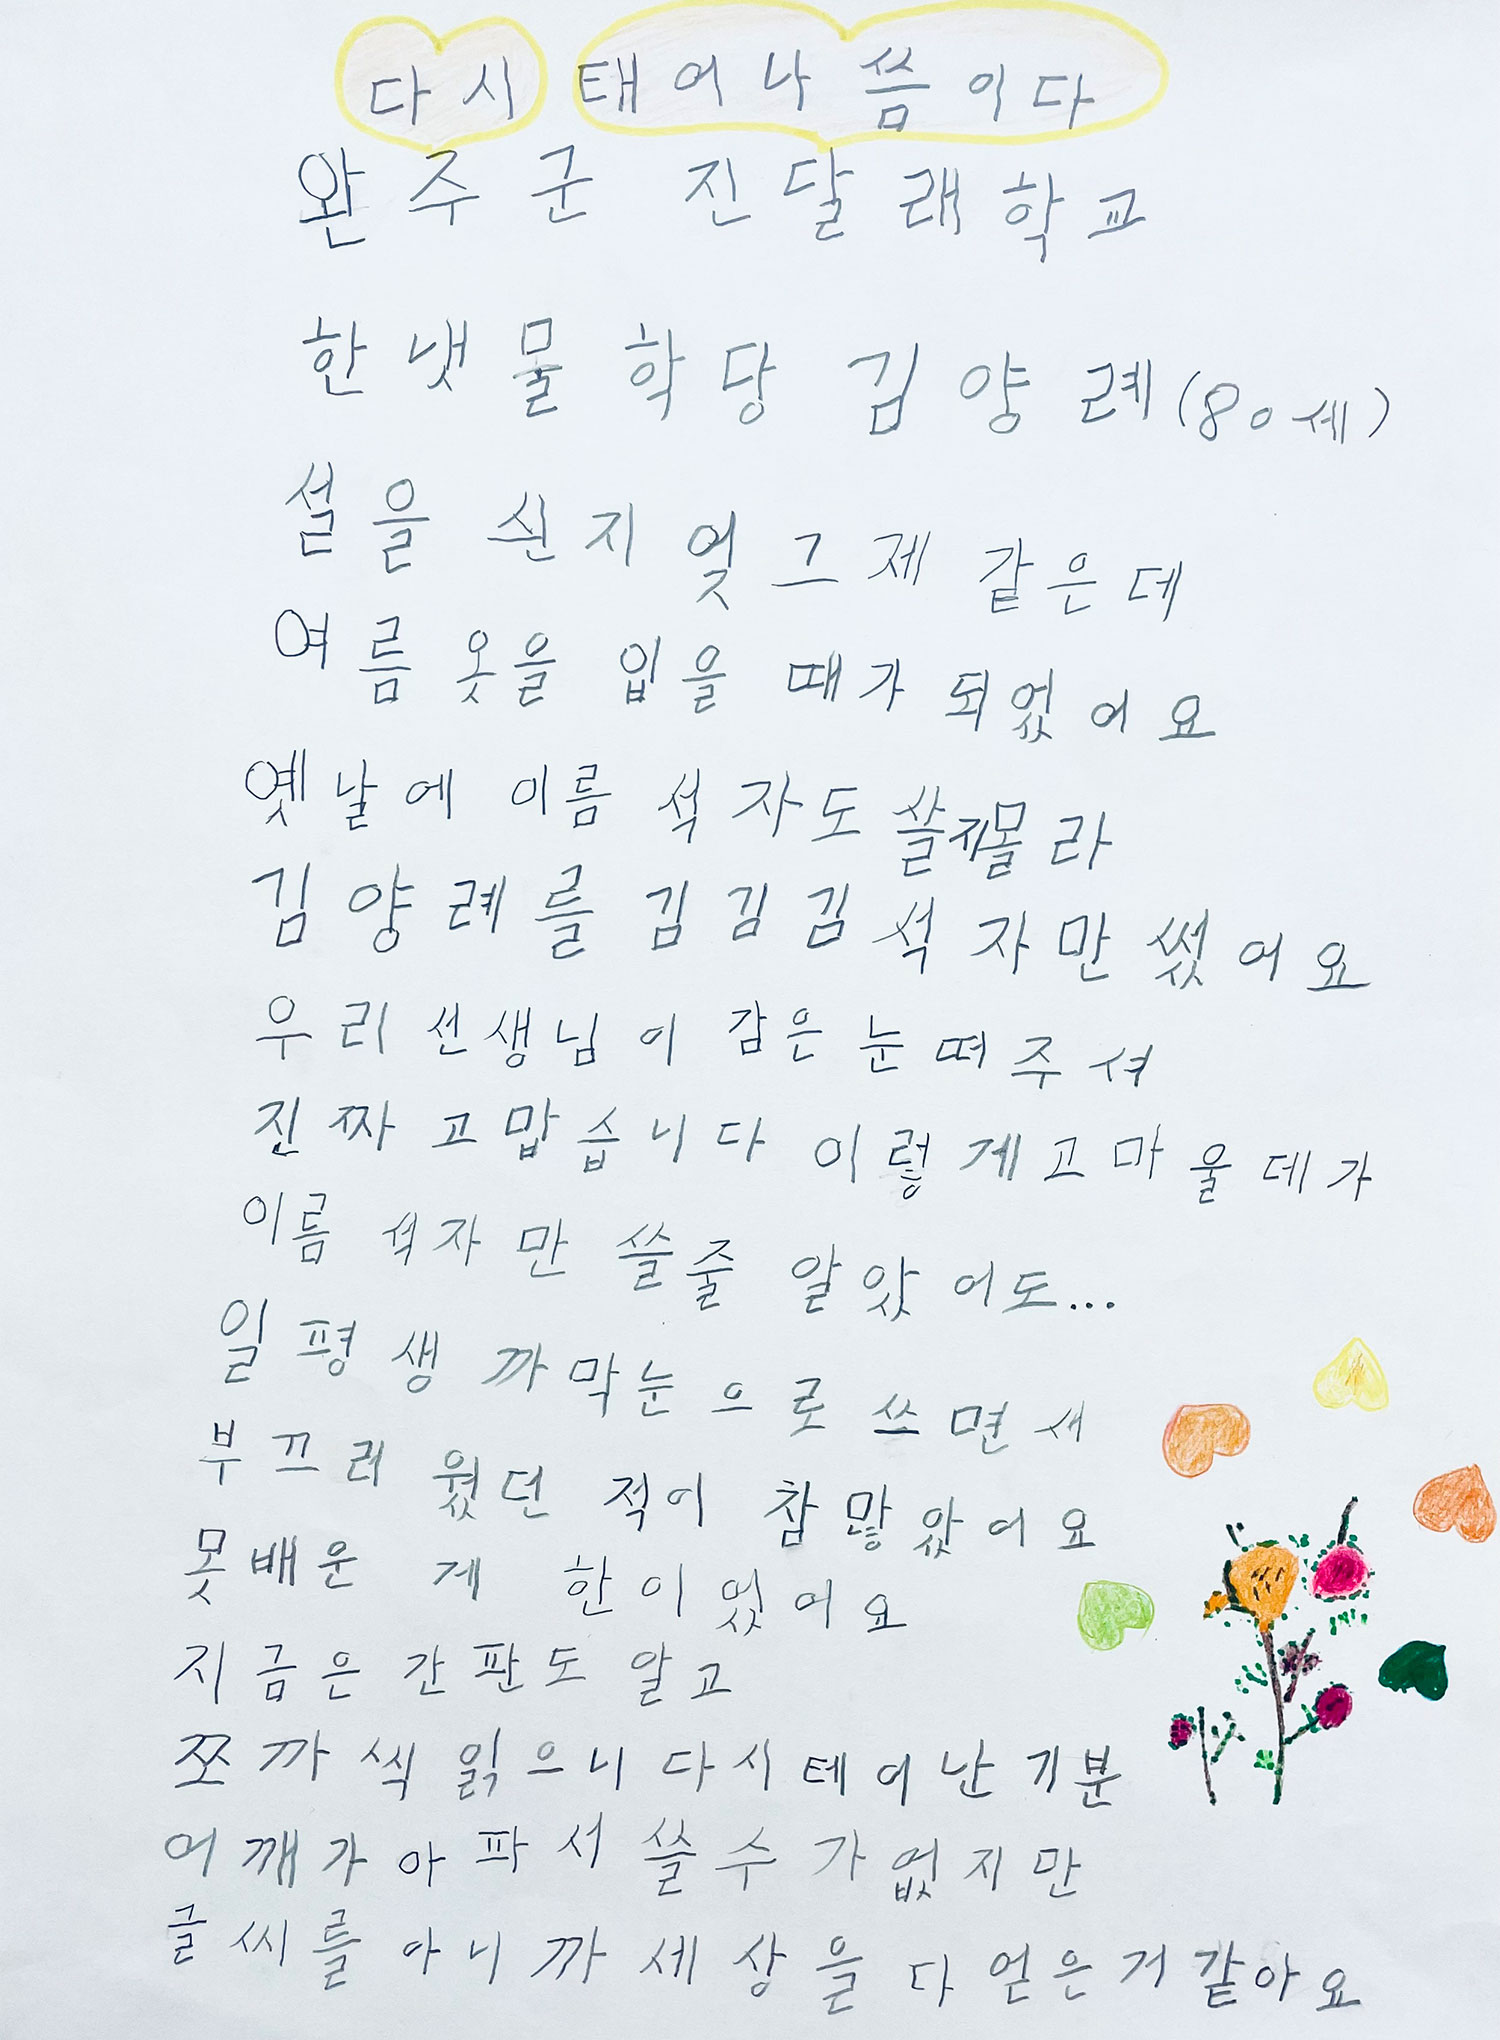 다시 태어나 씀이다
완주군 진달래학교
한냇물학당 김양례(80세)
설을 쉰지 엊그제 같은데
여름 옷을 입을 때가 되었어요
옛날에 이름 석자도 쓸지몰라
김양례를 김김김 석자만 썼어요
우리선생님이 감은 눈떠주셔
진짜 고맙습니다 이렇게고마울데가
이름 석자만 쓸줄 알았어도...
일평생 까막눈으로 쓰면서
부끄러웠던 적이 참많았어요
못배운 게 한이있어요
지금은 간판도 알고
쪼까씩 읽으니 다시테어난기분
어깨가아파서 쓸수가없지만
글씨를 아니까 세상을 다얻은거같아요